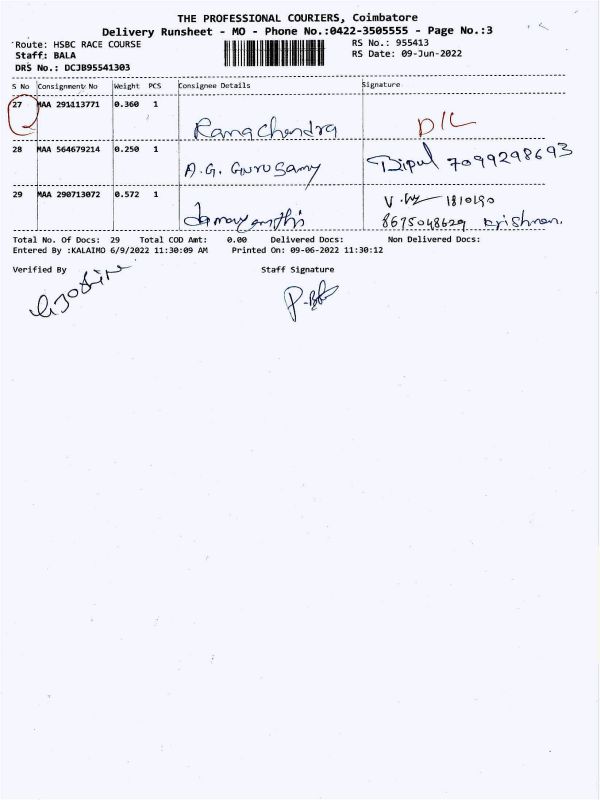 THE PROFESSIONAL COURIERS, Coimbatore
Delivery Runsheet - MO - Phone No.:0422-3505555 - Page No.:3
Route: HSBC RACE COURSE
Staff: BALA
DRS No.: DCJB95541303
RS No.: 955413
RS Date: 09-Jun-2022
S No Consignment No Weight PCS Consignee Details Signature
27 MAA 291113771 0.360 1 Ramachandra D/L
28 MAA 564679214 0.250 1 A.G. Gurusamy Bipul 7099298693
29 MAA 290713072 0.572 1 damayanthi
8675048629 krishnan.
Total No. Of Docs: 29 Total COD Amt: 0.00 Delivered Docs: Non Delivered Docs:
Entered By :KALAIMO 6/9/2022 11:30:09 AM Printed On: 09-06-2022 11:30:12
Verified By Staff Signature